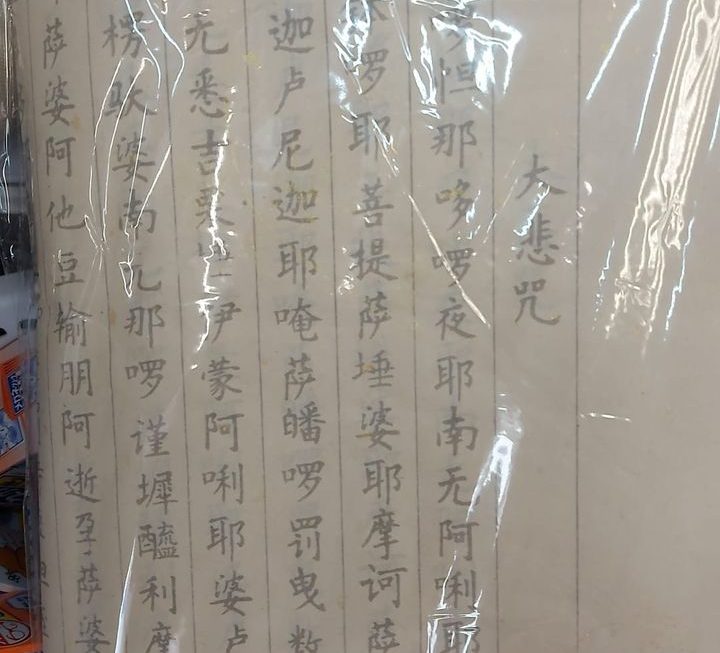 大悲咒
怛那哆啰夜耶南无阿唎耶
啰耶菩提萨埵婆耶摩诃萨
迦卢尼迦耶唵萨皤啰罚曳数
无悉吉栗伊蒙阿唎耶婆卢
楞驮婆南无那啰谨墀醯利摩
萨婆阿他豆输朋阿逝孕萨婆